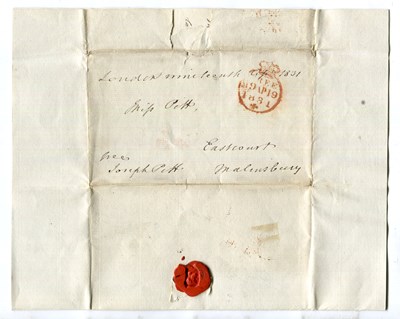 London nineteenth Sep 1831
Miss Pitt
Eastcourt
Malmsbury
free
Joseph Pitt
FREE
19 19
1831